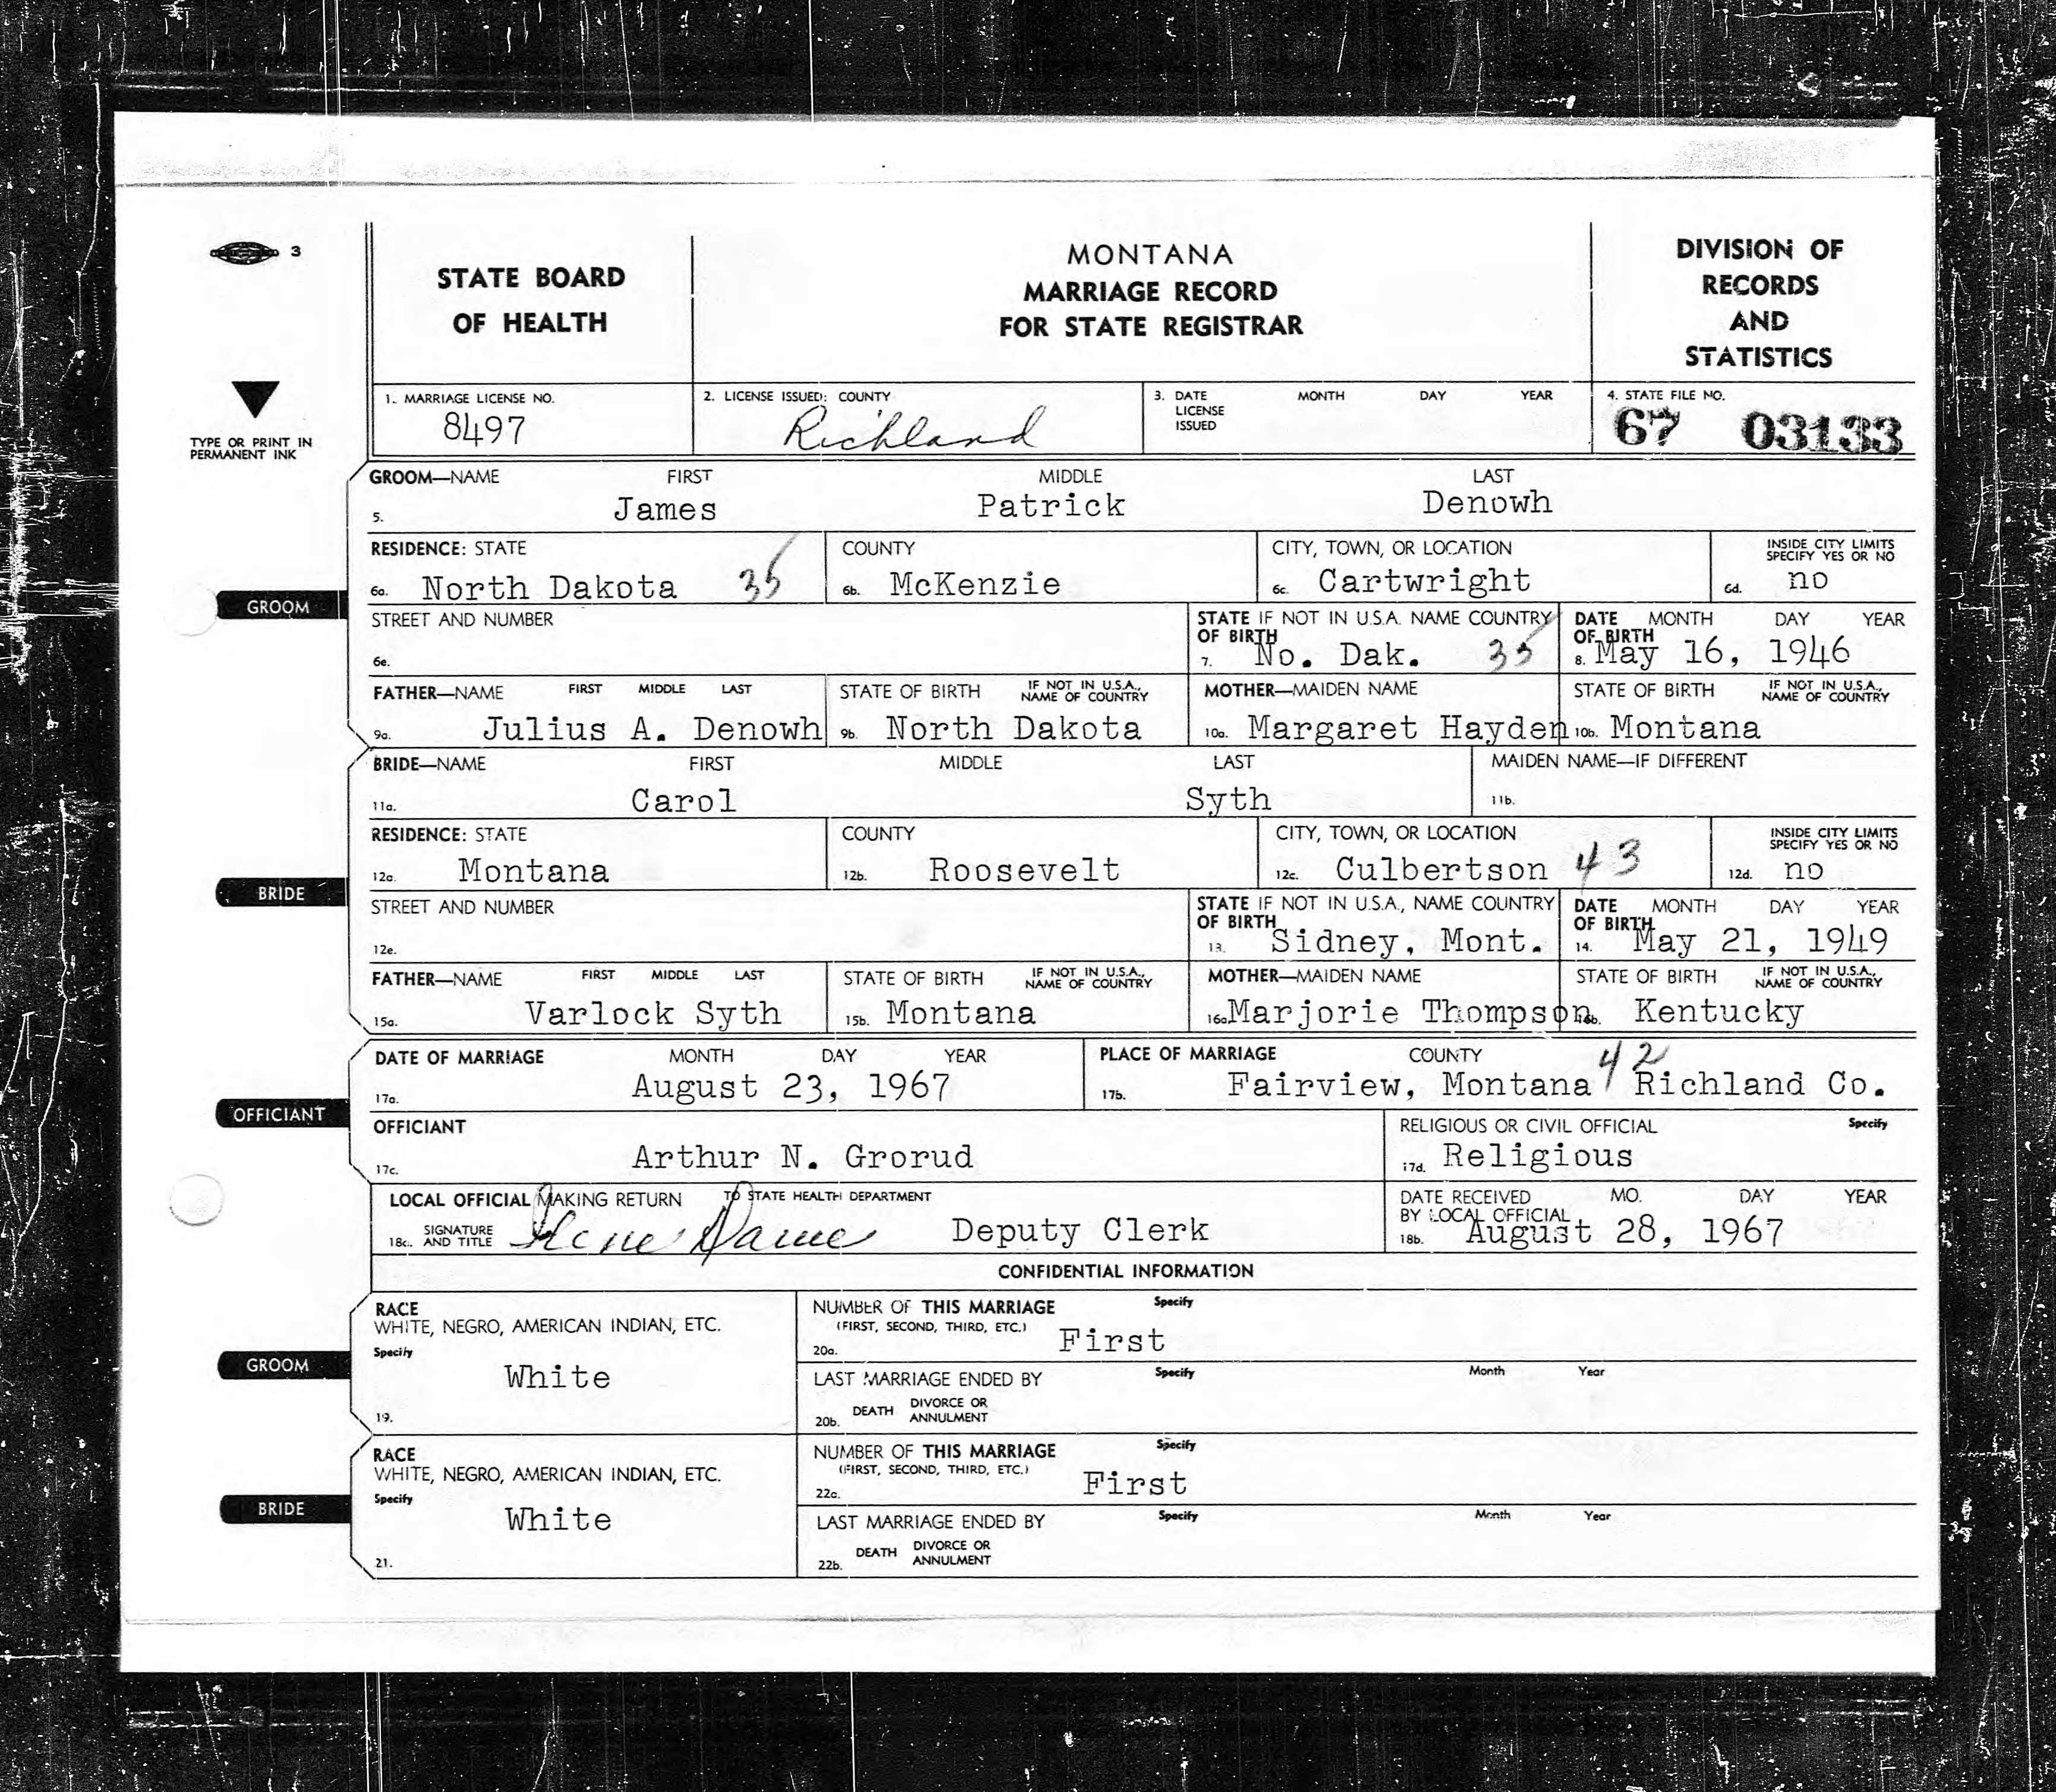 3
STATE BOARD OF HEALTH
MONTANA
MARRIAGE RECORD
FOR STATE REGISTRAR
DIVISION OF RECORDS AND STATISTICS
TYPE OR PRINT IN PERMANENT INK
1. MARRIAGE LICENSE NO. 8497
2. LICENSE ISSUED: COUNTY Richland
3. DATE LICENSE ISSUED MONTH DAY YEAR
4. STATE FILE NO. 67 03133
GROOM
GROOM—NAME FIRST MIDDLE LAST
5. James Patrick Denowh
RESIDENCE: STATE COUNTY CITY, TOWN, OR LOCATION INSIDE CITY LIMITS SPECIFY YES OR NO
6a. North Dakota 35 6b. McKenzie 6c. Cartwright 6d. no
STREET AND NUMBER STATE OF BIRTH IF NOT IN U.S.A. NAME COUNTRY DATE OF BIRTH MONTH DAY YEAR
6e. 7. No. Dak. 35 8. May 16, 1946
FATHER—NAME FIRST MIDDLE LAST STATE OF BIRTH IF NOT IN U.S.A., NAME OF COUNTRY MOTHER—MAIDEN NAME STATE OF BIRTH IF NOT IN U.S.A., NAME OF COUNTRY
9a. Julius A. Denowh 9b. North Dakota 10a. Margaret Hayden 10b. Montana
BRIDE
BRIDE—NAME FIRST MIDDLE LAST MAIDEN NAME—IF DIFFERENT
11a. Carol Syth 11b.
RESIDENCE: STATE COUNTY CITY, TOWN, OR LOCATION INSIDE CITY LIMITS SPECIFY YES OR NO
12a. Montana 12b. Roosevelt 12c. Culbertson 43 12d. no
STREET AND NUMBER STATE OF BIRTH IF NOT IN U.S.A., NAME COUNTRY DATE OF BIRTH MONTH DAY YEAR
12e. 13. Sidney, Mont. 14. May 21, 1949
FATHER—NAME FIRST MIDDLE LAST STATE OF BIRTH IF NOT IN U.S.A., NAME OF COUNTRY MOTHER—MAIDEN NAME STATE OF BIRTH IF NOT IN U.S.A., NAME OF COUNTRY
15a. Varlock Syth 15b. Montana 16a. Marjorie Thompson 16b. Kentucky
OFFICIANT
DATE OF MARRIAGE MONTH DAY YEAR PLACE OF MARRIAGE COUNTY 42
17a. August 23, 1967 17b. Fairview, Montana / Richland Co.
OFFICIANT RELIGIOUS OR CIVIL OFFICIAL Specify
17c. Arthur N. Grorud 17d. Religious
LOCAL OFFICIAL MAKING RETURN TO STATE HEALTH DEPARTMENT DATE RECEIVED BY LOCAL OFFICIAL MO. DAY YEAR
18c. SIGNATURE AND TITLE Deputy Clerk 18b. August 28, 1967
CONFIDENTIAL INFORMATION
GROOM
RACE
WHITE, NEGRO, AMERICAN INDIAN, ETC.
Specify
White
19.
NUMBER OF THIS MARRIAGE Specify
(FIRST, SECOND, THIRD, ETC.)
20a. First
LAST MARRIAGE ENDED BY Specify Month Year
20b. DEATH DIVORCE OR ANNULMENT
BRIDE
RACE
WHITE, NEGRO, AMERICAN INDIAN, ETC.
Specify
White
21.
NUMBER OF THIS MARRIAGE Specify
(FIRST, SECOND, THIRD, ETC.)
22a. First
LAST MARRIAGE ENDED BY Specify Month Year
22b. DEATH DIVORCE OR ANNULMENT